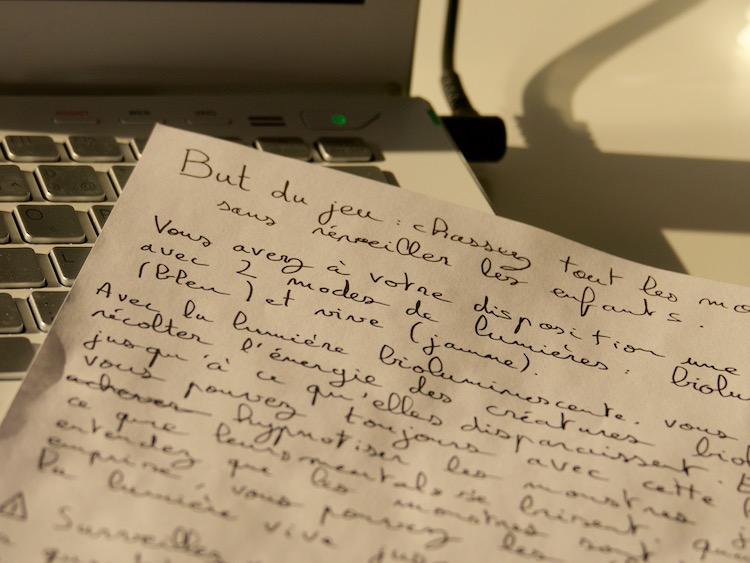 But du jeu : chassez tout les mo
sans réveiller les enfants.
Vous avez à votre disposition une
avec 2 modes de lumières : biolu
(Bleu) et vive (jaune).
Avec la lumière bioluminescente, vous
récolter l'énergie des créatures biol
jusqu'à ce qu'elles disparaissent.
vous pouvez toujours avec cette
hypnotiser les monstres
ce que leurs mentals se brisent
entendez que les monstres sont
emprise, vous pouvez les
la lumière vive
⚠ Surveillez